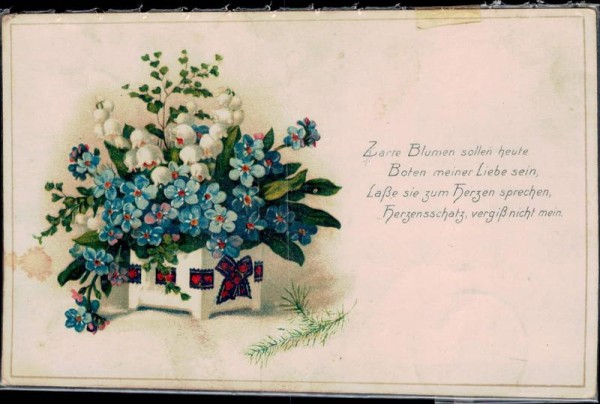 Zarte Blumen sollen heute
Boten meiner Liebe sein,
Laße sie zum Herzen sprechen,
Herzensschatz, vergiß nicht mein.